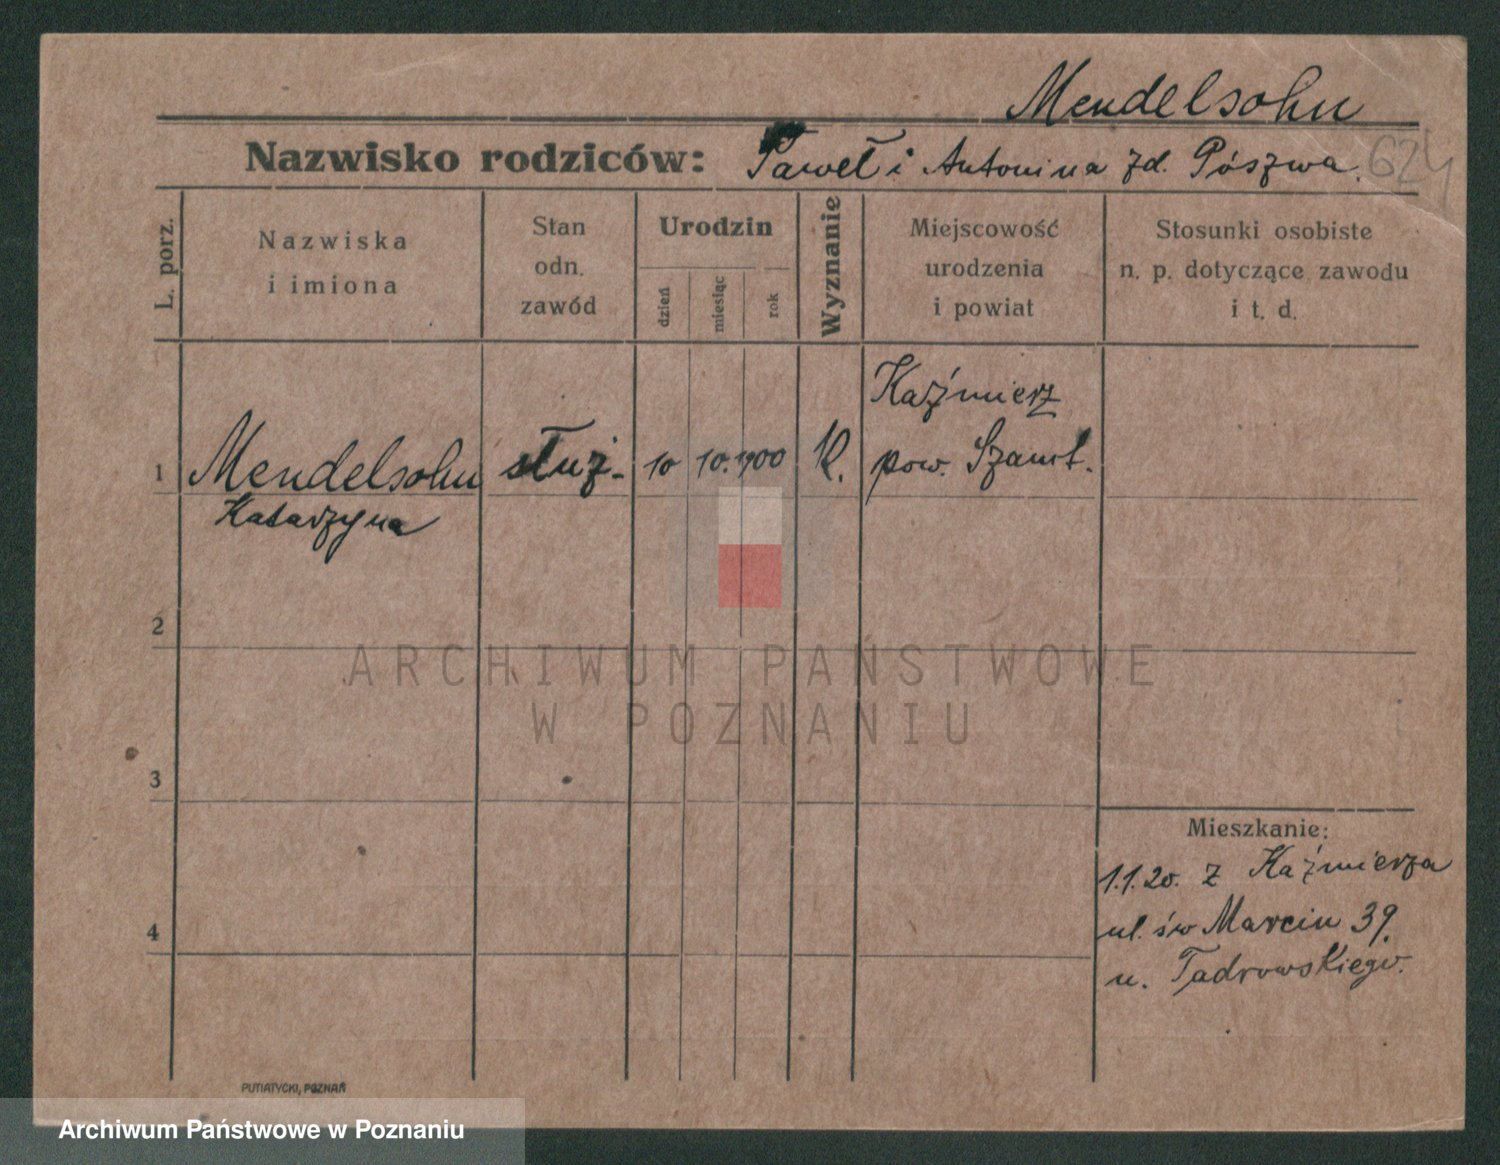 Mendelsohn
Nazwisko rodziców: Paweł i Antonina zd. Pószwa.
624
L. porz.
Nazwiska
i imiona
Stan
odn.
zawód
Urodzin
dzień
miesiąc
rok
Wyznanie
Miejscowość
urodzenia
i powiat
Stosunki osobiste
n. p. dotyczące zawodu
i t. d.
1
Mendelsohn
Katarzyna
służ.
10
10.
1900
K.
Kaźmierz
pow. Szamt.
2
ARCHIWUM PAŃSTWOWE
W POZNANIU
3
4
Mieszkanie:
1.1.20. z Kaźmierza
ul. św Marcin 39.
u. Tadrowskiego.
PUTIATYCKI, POZNAŃ
Archiwum Państwowe w Poznaniu